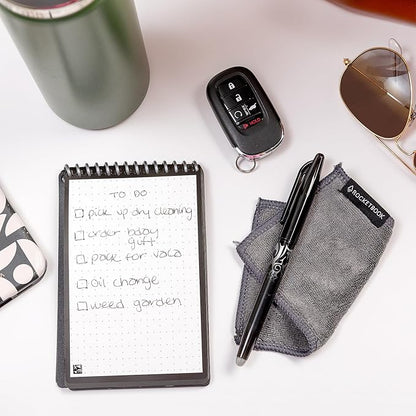 TO DO
pick up dry cleaning
order baby
gift
pack for vaca
oil change
weed garden
ROCKETBOOK
HOLD